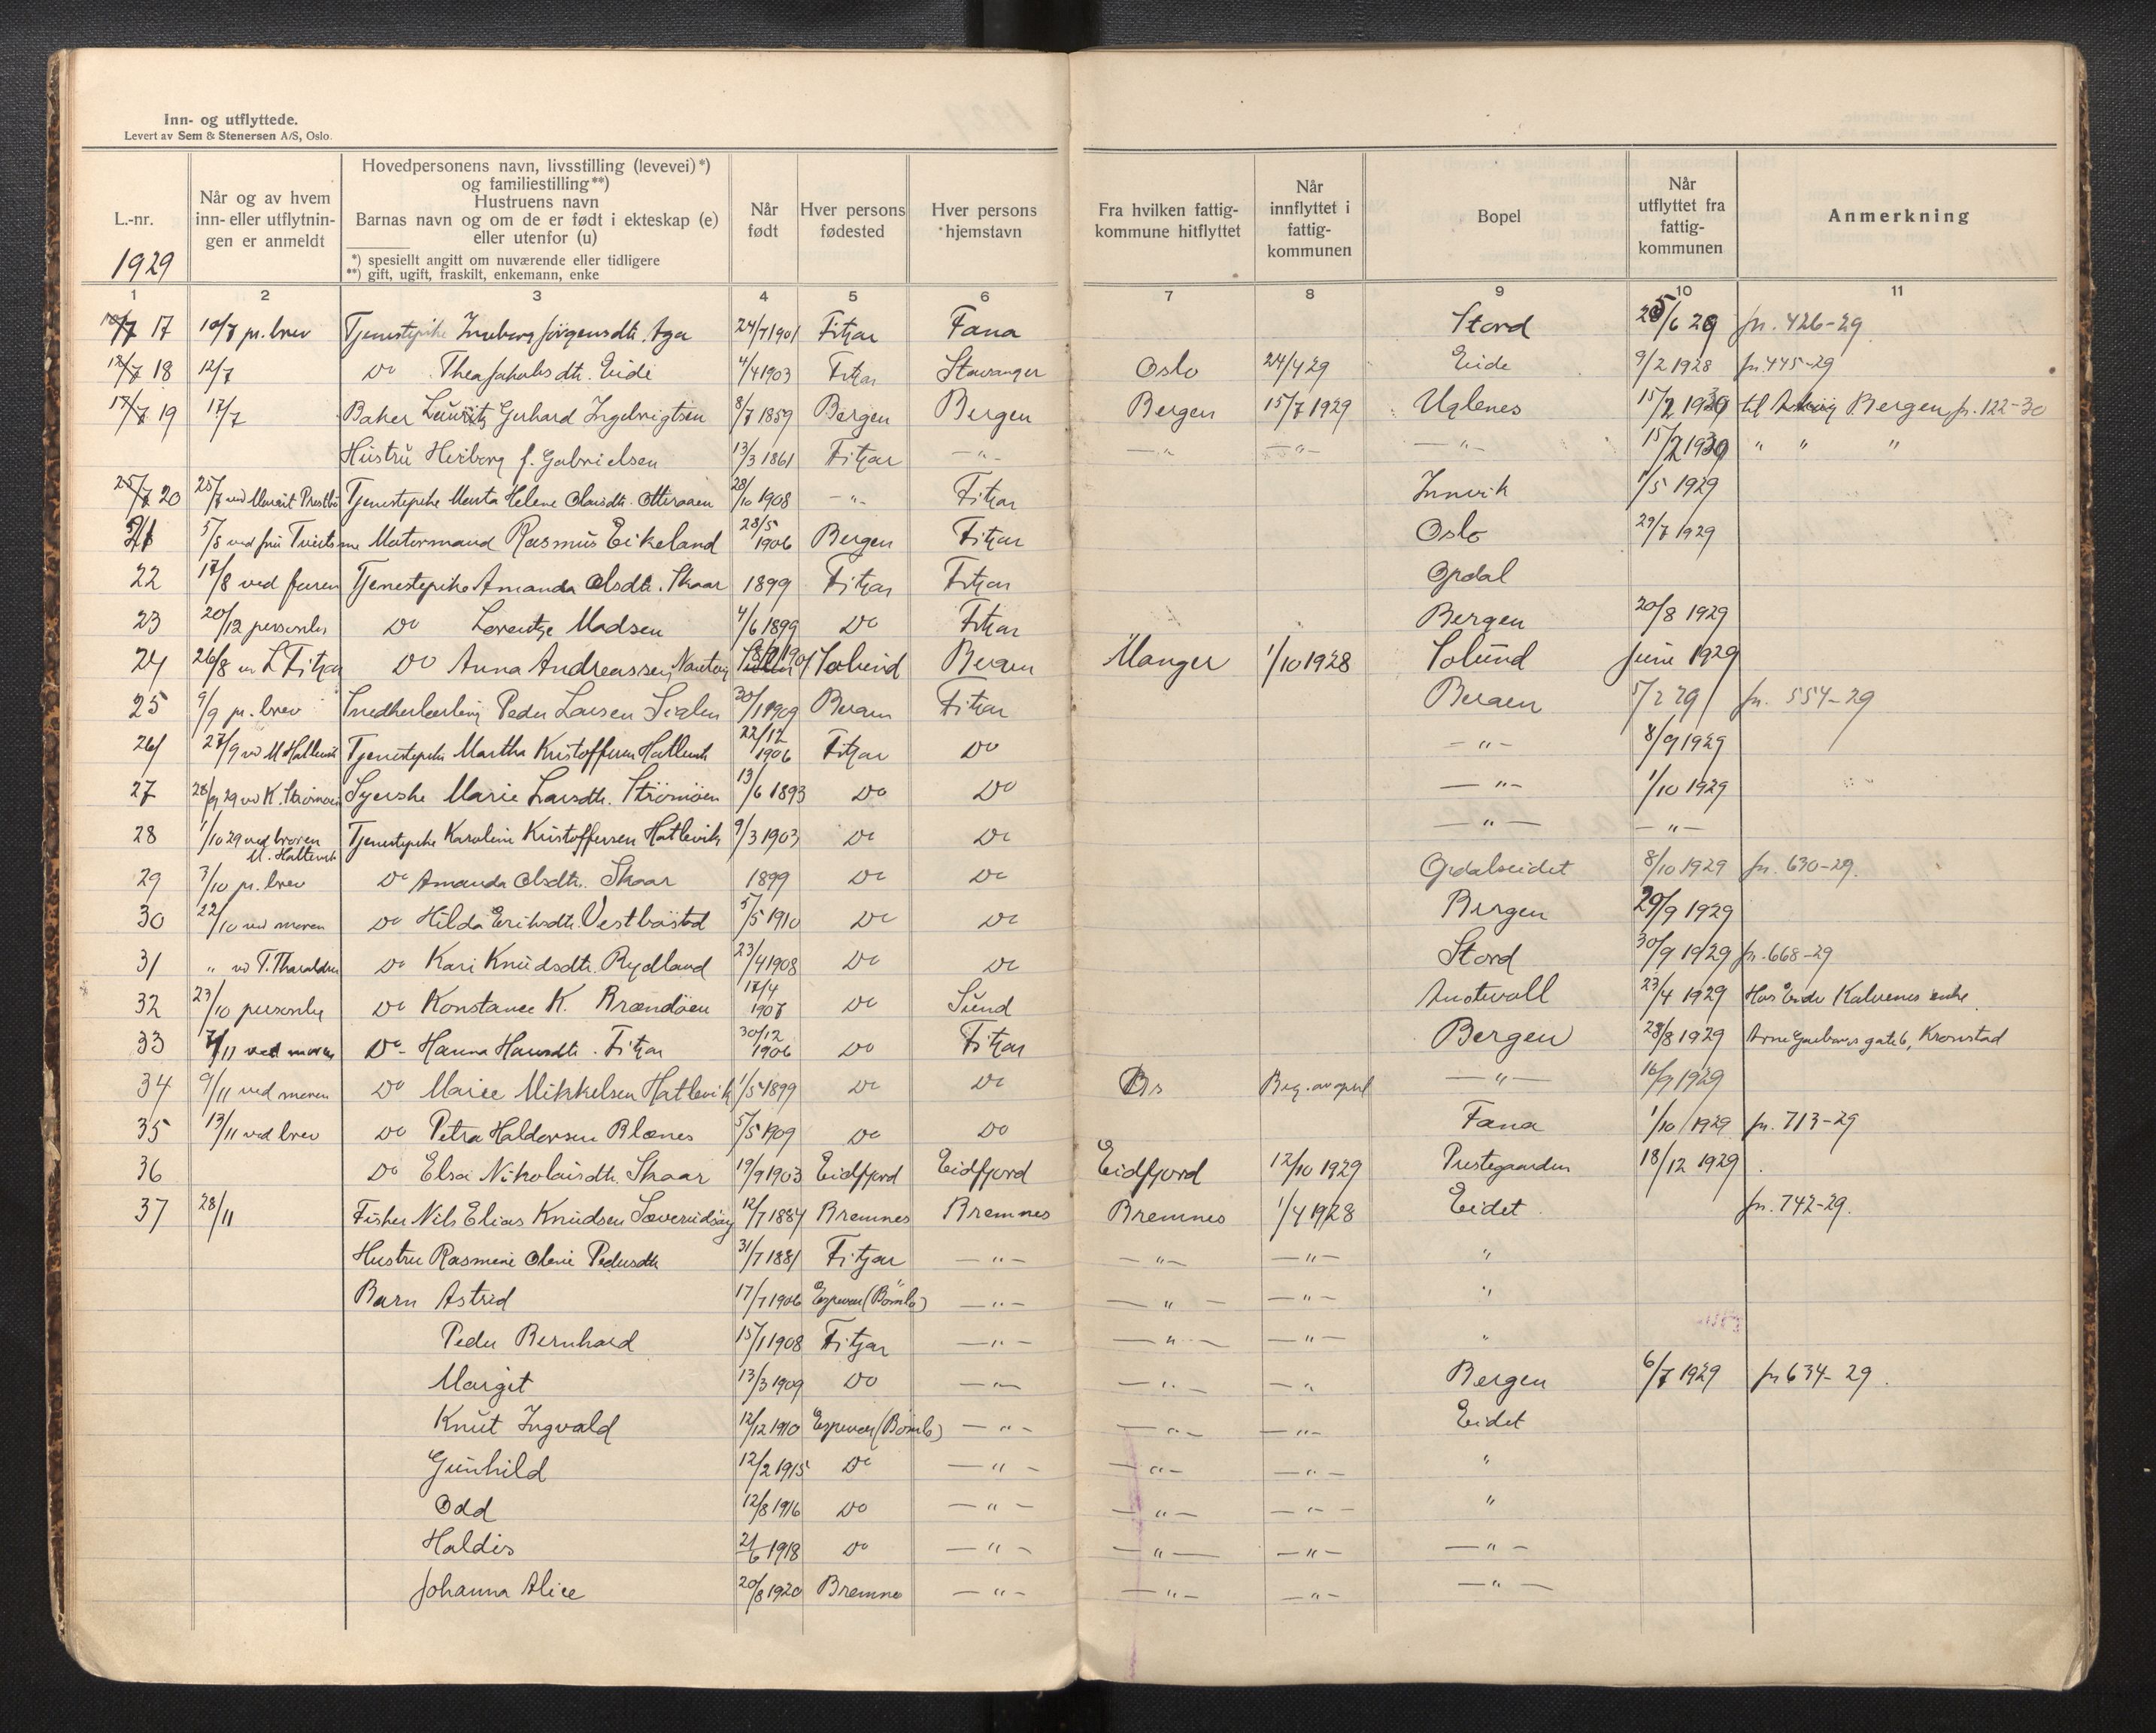 Inn- og utflyttede.
Levert av Sem & Stenersen A/S, Oslo.
L.-nr.
1929
Når og av hvem
inn- eller utflytnin-
gen er anmeldt
Hovedpersonens navn, livsstilling (levevei)*)
og familiestilling**)
Hustruens navn
Barnas navn og om de er født i ekteskap (e)
eller utenfor (u)
*) spesielt angitt om nuværende eller tidligere
**) gift, ugift, fraskilt, enkemann, enke
Når
født
Hver persons
fødested
Hver persons
hjemstavn
Fra hvilken fattig-
kommune hitflyttet
Når
innflyttet i
fattig-
kommunen
Bopel
Når
utflyttet fra
fattig-
kommunen
Anmerkning
1 2 3 4 5 6 7 8 9 10 11
10/7 17 10/7 pr. brev Tjenestepike Ingeborg Jørgensdtr. Aga 24/7 1901 Fitjar Fana Stord /6 29 jn. 426-29
12/7 18 12/7 Do Thea Jakobsdtr. Eide 4/4 1903 Fitjar Stavanger Oslo 24/4 29 Eide 9/2 1928 jn. 445-29
17/7 19 17/7 Baker Lauritz Gerhard Ingebrigtsen 8/7 1859 Bergen Bergen Bergen 15/7 1929 Uglenes 15/2 1930 til Bergen jn. 122-30
Hustrü Herborg f. Gabrielsen 13/3 1861 Fitjar —"— —"— —"— —"— 15/2 1930 " " "
25/7 20 25/7 ved Prestbø Tjenestepike Marta Helene Olavsdtr. Otteraaen 28/10 1908 —"— Fitjar Innvik 1/5 1929
21 5/8 ved frü Matormand Rasmüs Eikeland 28/5 1906 Bergen Fitjar Oslo 29/7 1929
22 17/8 ved faren Tjenestepike Amanda Olsdtr. Skaar 1899 Fitjar Fitjar Opdal
23 20/12 personlig Do Lorentze Madsen 4/6 1899 Do Fitjar Bergen 20/8 1929
24 26/8 L Fitjar Do Anna Andreassen, Solünd Bergen Manger 1/10 1928 Solünd Jüni 1929
25 9/9 pr. brev Peder Larsen Siglen 30/1 1909 Bergen Fitjar Bergen 5/2 29 jn. 554-29
26 27/9 ved M Hatlevik Tjenestepike Martha Kristoffersen Hatlevik 22/12 1906 Fitjar Do —"— 8/9 1929
27 28/9 29 ved K. Strømøen Syerske Marie Larsdtr. Strømøen 13/6 1893 Do Do —"— 1/10 1929
28 1/10 29 ved broren Tjenestepike Karoline Kristoffersen Hatlevik 9/3 1903 Do Do —"— —"—
M. Hatlevik
29 3/10 pr. brev Do Amanda Olsdtr. Skaar 1899 Do Do Opdalseidet 8/10 1929 jn. 630-29.
30 22/10 ved moren Do Hilda Eriksdtr. Vestbøstad 5/5 1910 Do Do Bergen 29/9 1929
31 " ved T. Tharaldsen Do Kari Knüdsdtr. Rydland 23/4 1908 Do Do Stord 30/9 1929 jn. 668-29
32 23/10 personlig Do Konstanse K. Brændøen 17/4 1907 Do Sünd Austevoll 23/4 1929 Hos Kalvenes enke
33 7/11 ved moren Do - Hanna Hansdtr. Fitjar 30/12 1906 Do Fitjar Bergen 28/8 1929 Arne Garborgs gate 6, Kronstad
34 9/11 ved moren Do Marie Mikkelsen Hatlevik 1/5 1899 Do Do Beg. av april —"— 16/9 1929
35 13/11 ved brev Do Petra Haldorsen Blænes 5/5 1909 Do Do Fana 1/10 1929 jn. 713-29
36 Do Elsa Nikolaisdtr. Skaar 19/9 1903 Eidfjord Eidfjord Eidfjord 12/10 1929 Prestegaarden 18/12 1929
37 28/11 Fisker Nils Elias Knüdsen Sæverüdsøy 12/7 1884 Bremnes Bremnes Bremnes 1/4 1928 Eidet jn. 742-29.
Hustru Rasmine Oline Pedersdtr 31/7 1881 Fitjar —"— —"— —"— "
Barn Astrid 17/7 1906 Espevær (Bømlo) —"— —"— —"— "
Peder Bernhard 15/1 1908 Fitjar —"— —"— —"— "
Margit 13/3 1909 Do —"— —"— —"— Bergen 6/7 1929 jn 634-29.
Knüt Ingvald 12/12 1910 Espevær (Bømlo) —"— —"— —"— Eidet
Günhild 12/2 1915 Do —"— —"— —"— "
Odd 12/8 1916 Do —"— —"— —"— "
Haldis 21/6 1918 Do —"— —"— —"— —"—
Johanna Alice 20/8 1920 Bremnes —"— —"— —"— —"—